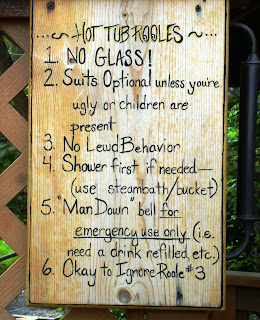 ~ HOT TUB ROOLES ~
1. NO GLASS!
2. Suits Optional unless you're
ugly or children are
present
3. No Lewd Behavior
4. Shower first if needed—
(use steambath/bucket)
5. "Man Down" bell for
emergency use only (i.e.
need a drink refilled, etc.)
6. Okay to Ignore Roole #3